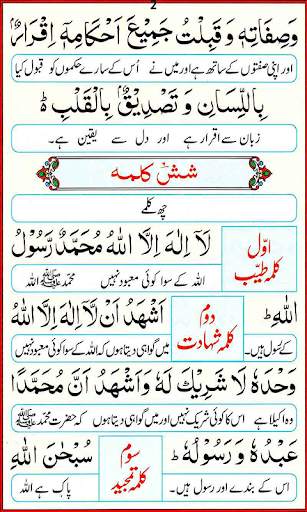 2
وَصِفَاتِهٖ وَقَبِلْتُ جَمِيْعَ اَحْكَامِهٖ اِقْرَارٌ
اور اپنی صفتوں کے ساتھ ہے اور میں نے اُس کے سارے حکموں کو قبول کیا
بِاللِّسَانِ وَ تَصْدِيْقٌ بِالْقَلْبِ ط
زبان سے اقرار ہے اور دل سے یقین ہے۔
شش کلمہ
چھ کلمے
اوّل کلمہ طیّب
لَآ اِلٰهَ اِلَّا اللّٰهُ مُحَمَّدٌ رَّسُوْلُ
اللہ کے سوا کوئی معبود نہیں محمد ﷺ اللہ
اللّٰهِ ط
دوم کلمہ شہادت
اَشْهَدُ اَنْ لَّآ اِلٰهَ اِلَّا اللّٰهُ
کے رسول ہیں۔ میں گواہی دیتا ہوں کہ اللہ کے سوا کوئی معبود نہیں
وَحْدَهٗ لَا شَرِيْكَ لَهٗ وَاَشْهَدُ اَنَّ مُحَمَّدًا
وہ اکیلا ہے اس کا کوئی شریک نہیں اور میں گواہی دیتا ہوں کہ حضرت محمد ﷺ
عَبْدُهٗ وَ رَسُوْلُهٗ ط
سوم کلمہ تمجید
سُبْحٰنَ اللّٰهِ
اس کے بندے اور رسول ہیں۔ پاک ہے اللہ